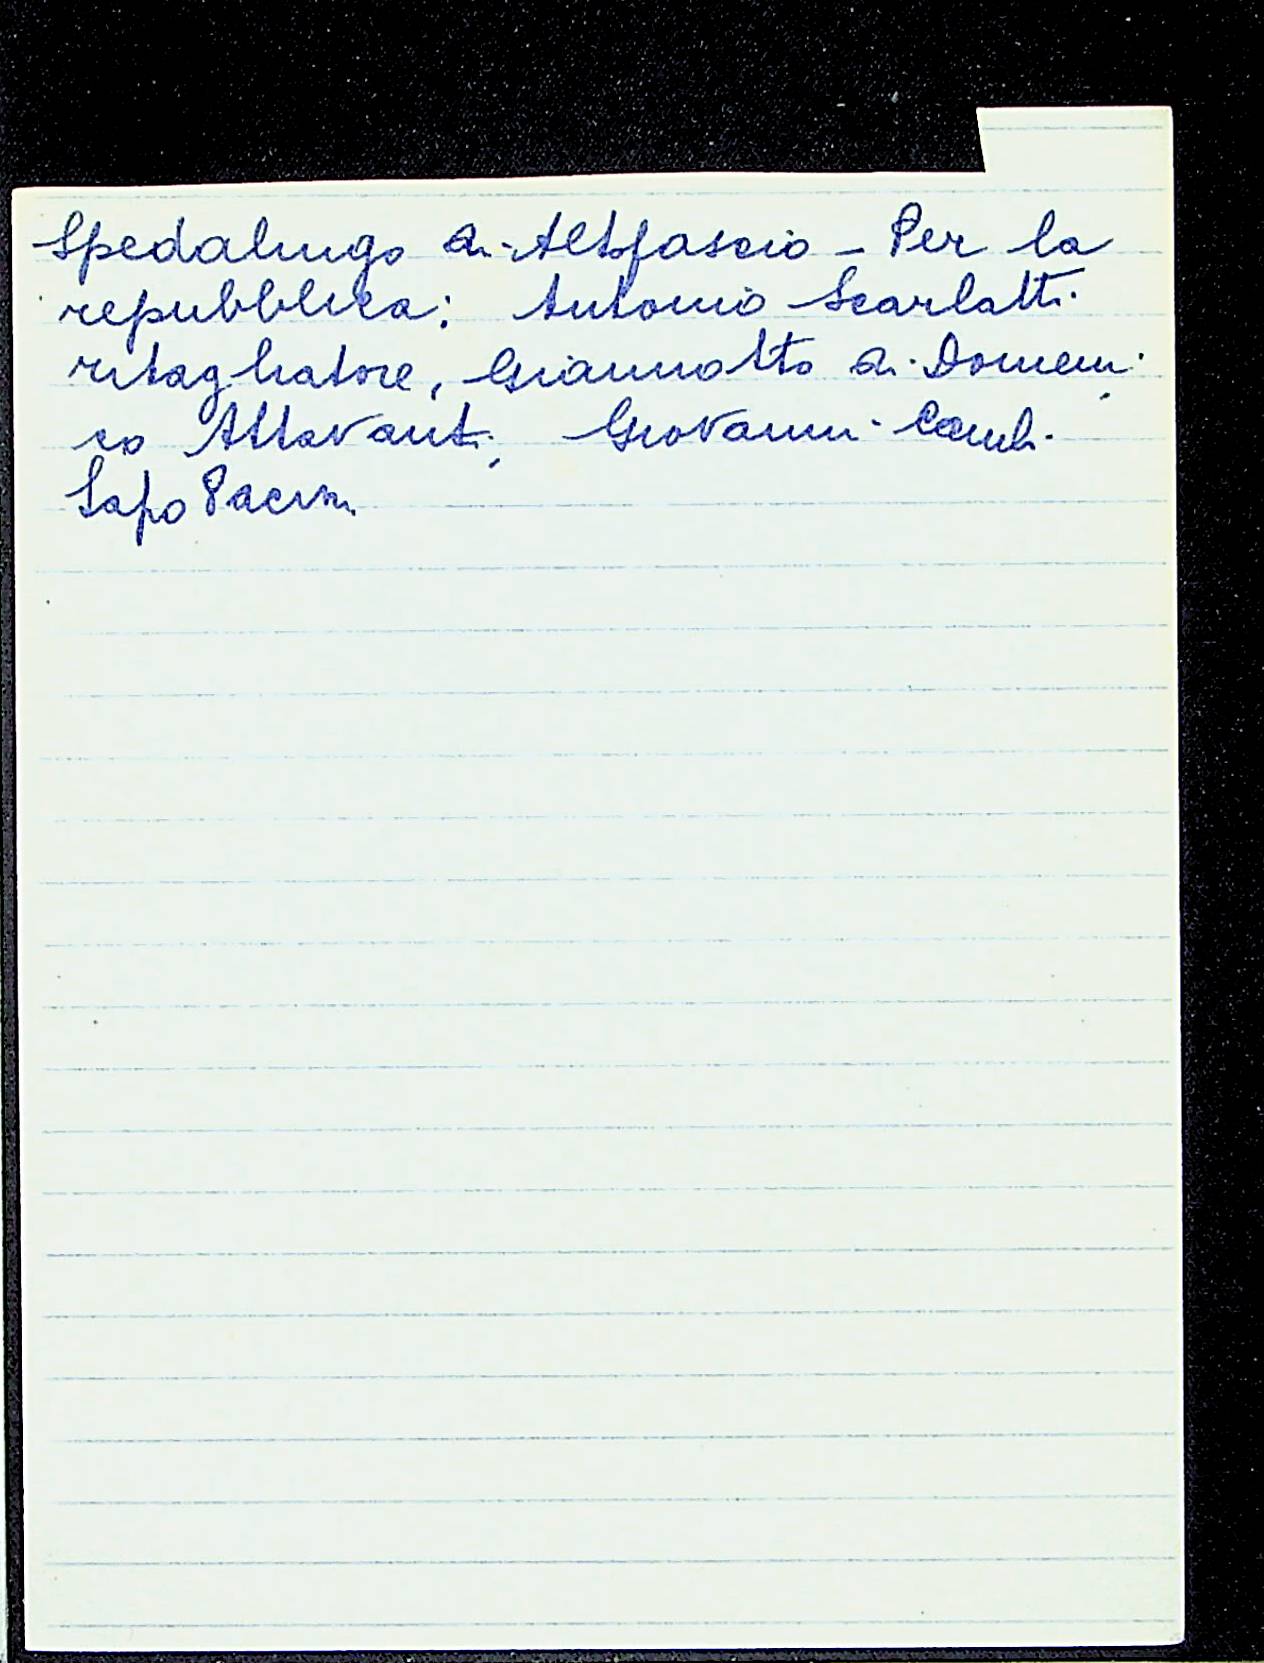 Spedalingo di Altofascio – Per la
repubblica: Antonio Scarlatti
ritagliatore, Giannotto di Domeni-
co Attavanti, Giovanni Cambi
Lapo Pacini